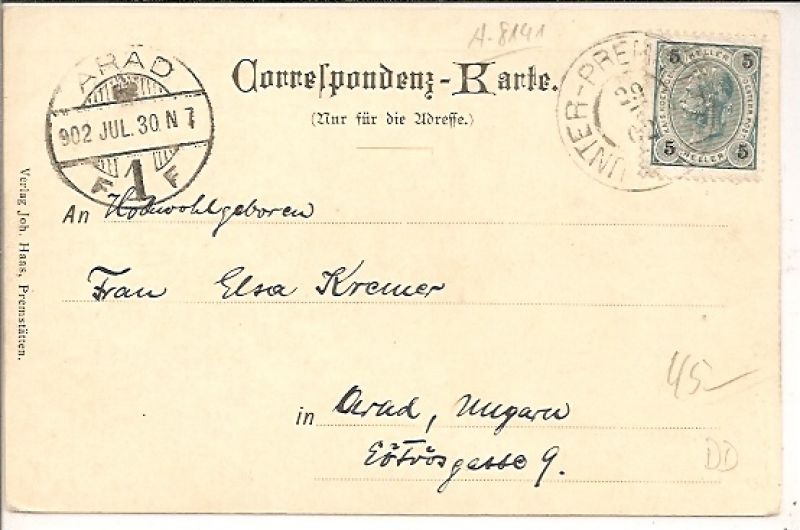 A-8141
ARAD
902 JUL. 30. N 7
F 1 F
Correspondenz-Karte.
(Nur für die Adresse.)
UNTER-PREM
5 HELLER 5
5 HELLER 5
An Hochwohlgeboren
Frau Elsa Kremer
in Arad, Ungarn
Eötvösgasse 9.
45-
DD
Verlag Joh. Haas, Premstätten.